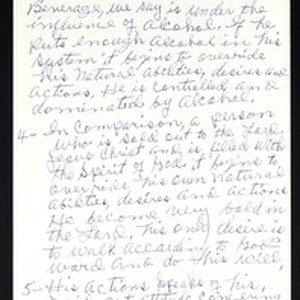 Beverage, we say is under the
influence of Alcohol. If he
puts enough Alcohol in his
system it begins to override
his Natural Abilities, desires and
Actions. He is controlled and
dominated by Alcohol.
4- In Comparison, a person
who is sold out to the Lord
Jesus Christ and is filled with
the Spirit of God it begins to
override his own Natural
Abilities, desires and Actions
He become very bold in
the Lord, his only desire is
to walk According to God's
Word And do His will,
5- His Actions Speaks of his,
attitude